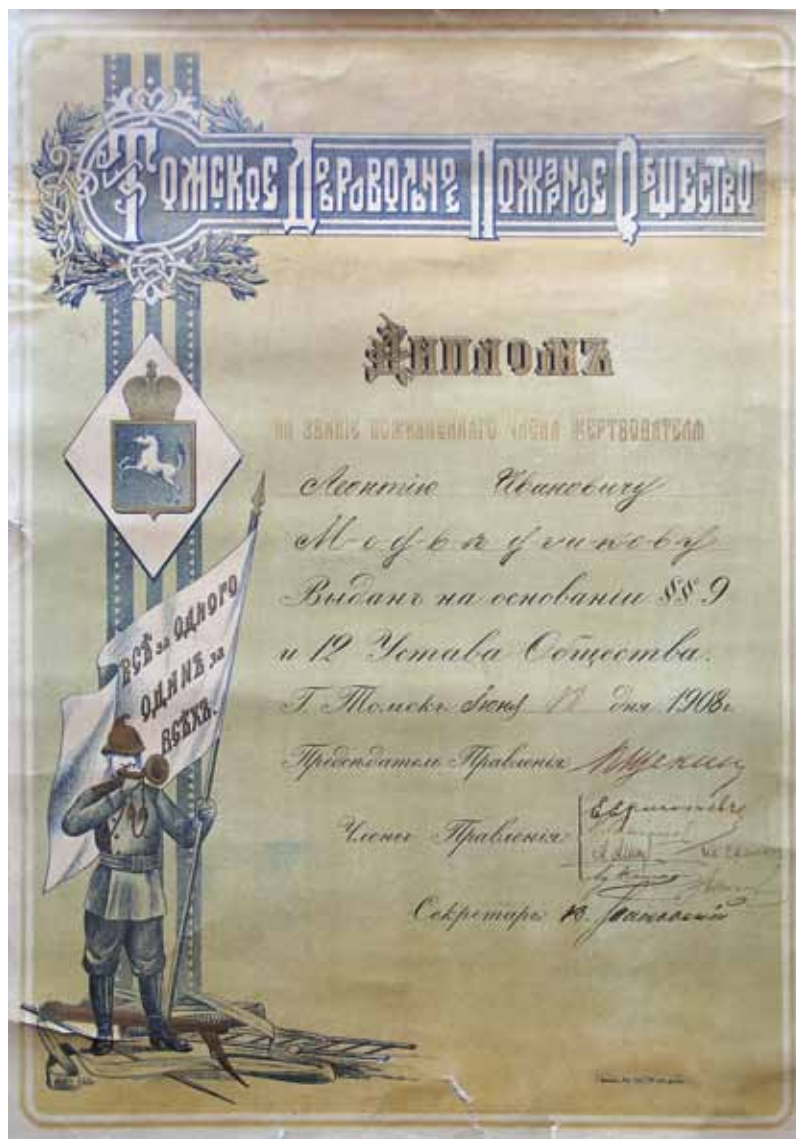 Томское Добровольное Пожарное Общество
Дипломъ
на званіе пожизненнаго члена жертвователя
Леонтію Ивановичу
Выданъ на основаніи §§ 9
и 12 Устава Общества.
Г. Томскъ Іюня 12 дня 1908 г.
Предсѣдатель Правленія
Члены Правленія
Секретарь В.
ВСѢ за ОДНОГО
ОДИНЪ за
ВСѢХЪ.